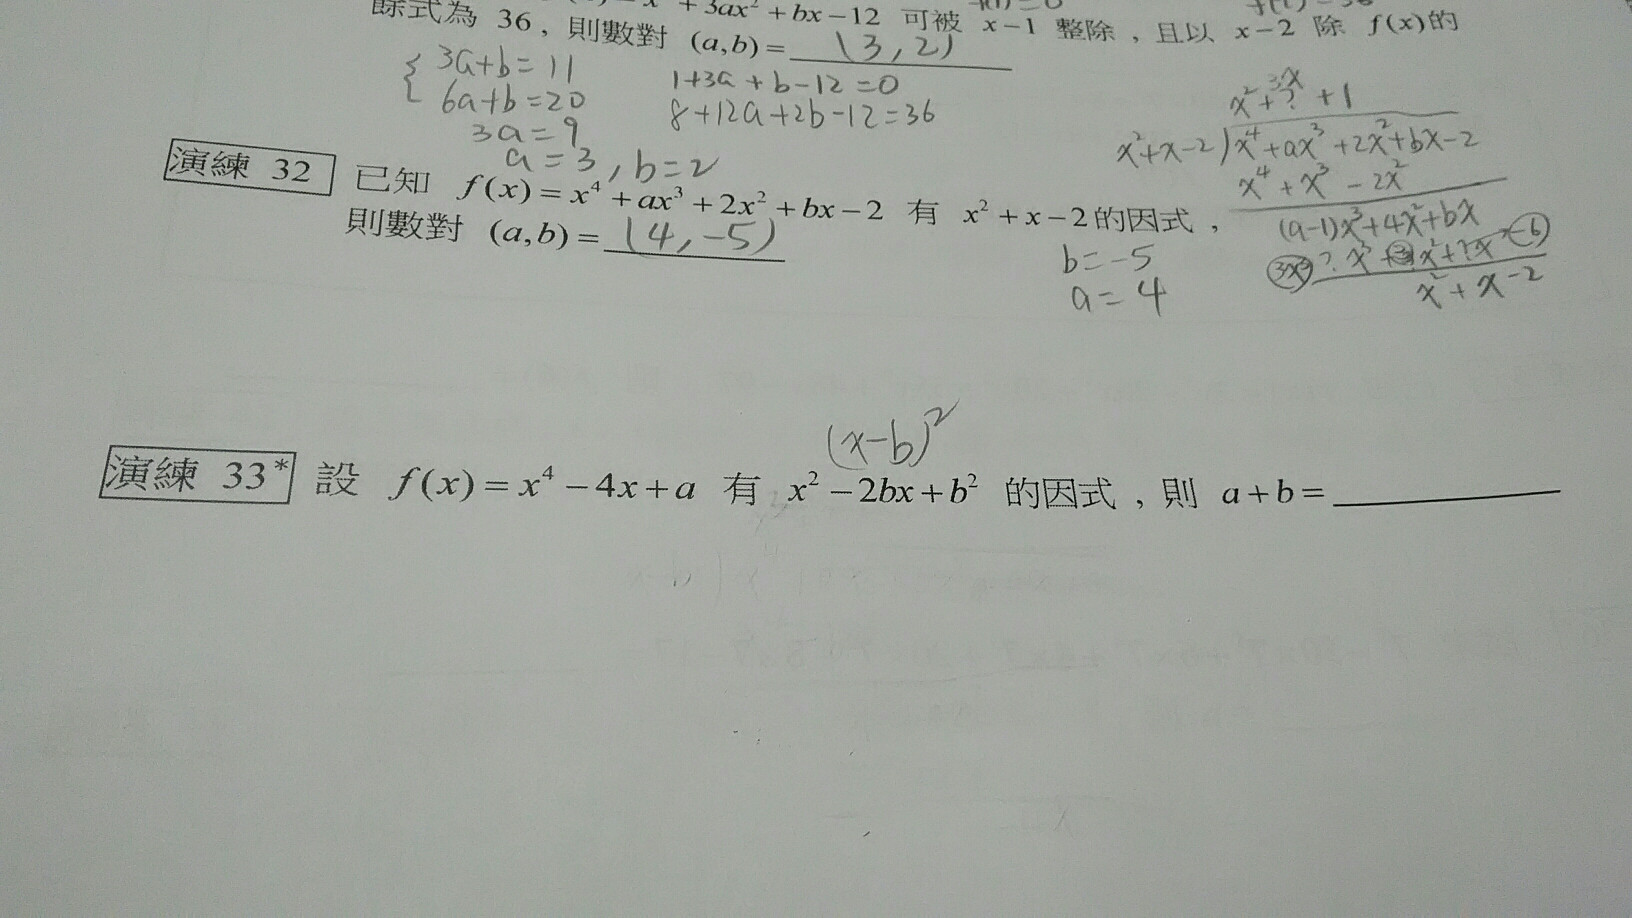 + 3ax² + bx − 12 可被 x − 1 整除，且以 x − 2 除 f(x)的
餘式為 36，則數對 (a,b) = (3, 2)
{ 3a+b=11
6a+b=20
3a=9
a=3, b=2
1+3a+b-12=0
8+12a+2b-12=36
演練 32 已知 f(x) = x⁴ + ax³ + 2x² + bx − 2 有 x² + x − 2 的因式，
則數對 (a,b) = (4, -5)
b=-5
a=4
3x
x²+?+1
x²+x-2)x⁴+ax³+2x²+bx-2
x⁴+x³-2x²
(a-1)x³+4x²+bx
x²+x-2
(x-b)²
演練 33* 設 f(x) = x⁴ − 4x + a 有 x² − 2bx + b² 的因式，則 a + b =